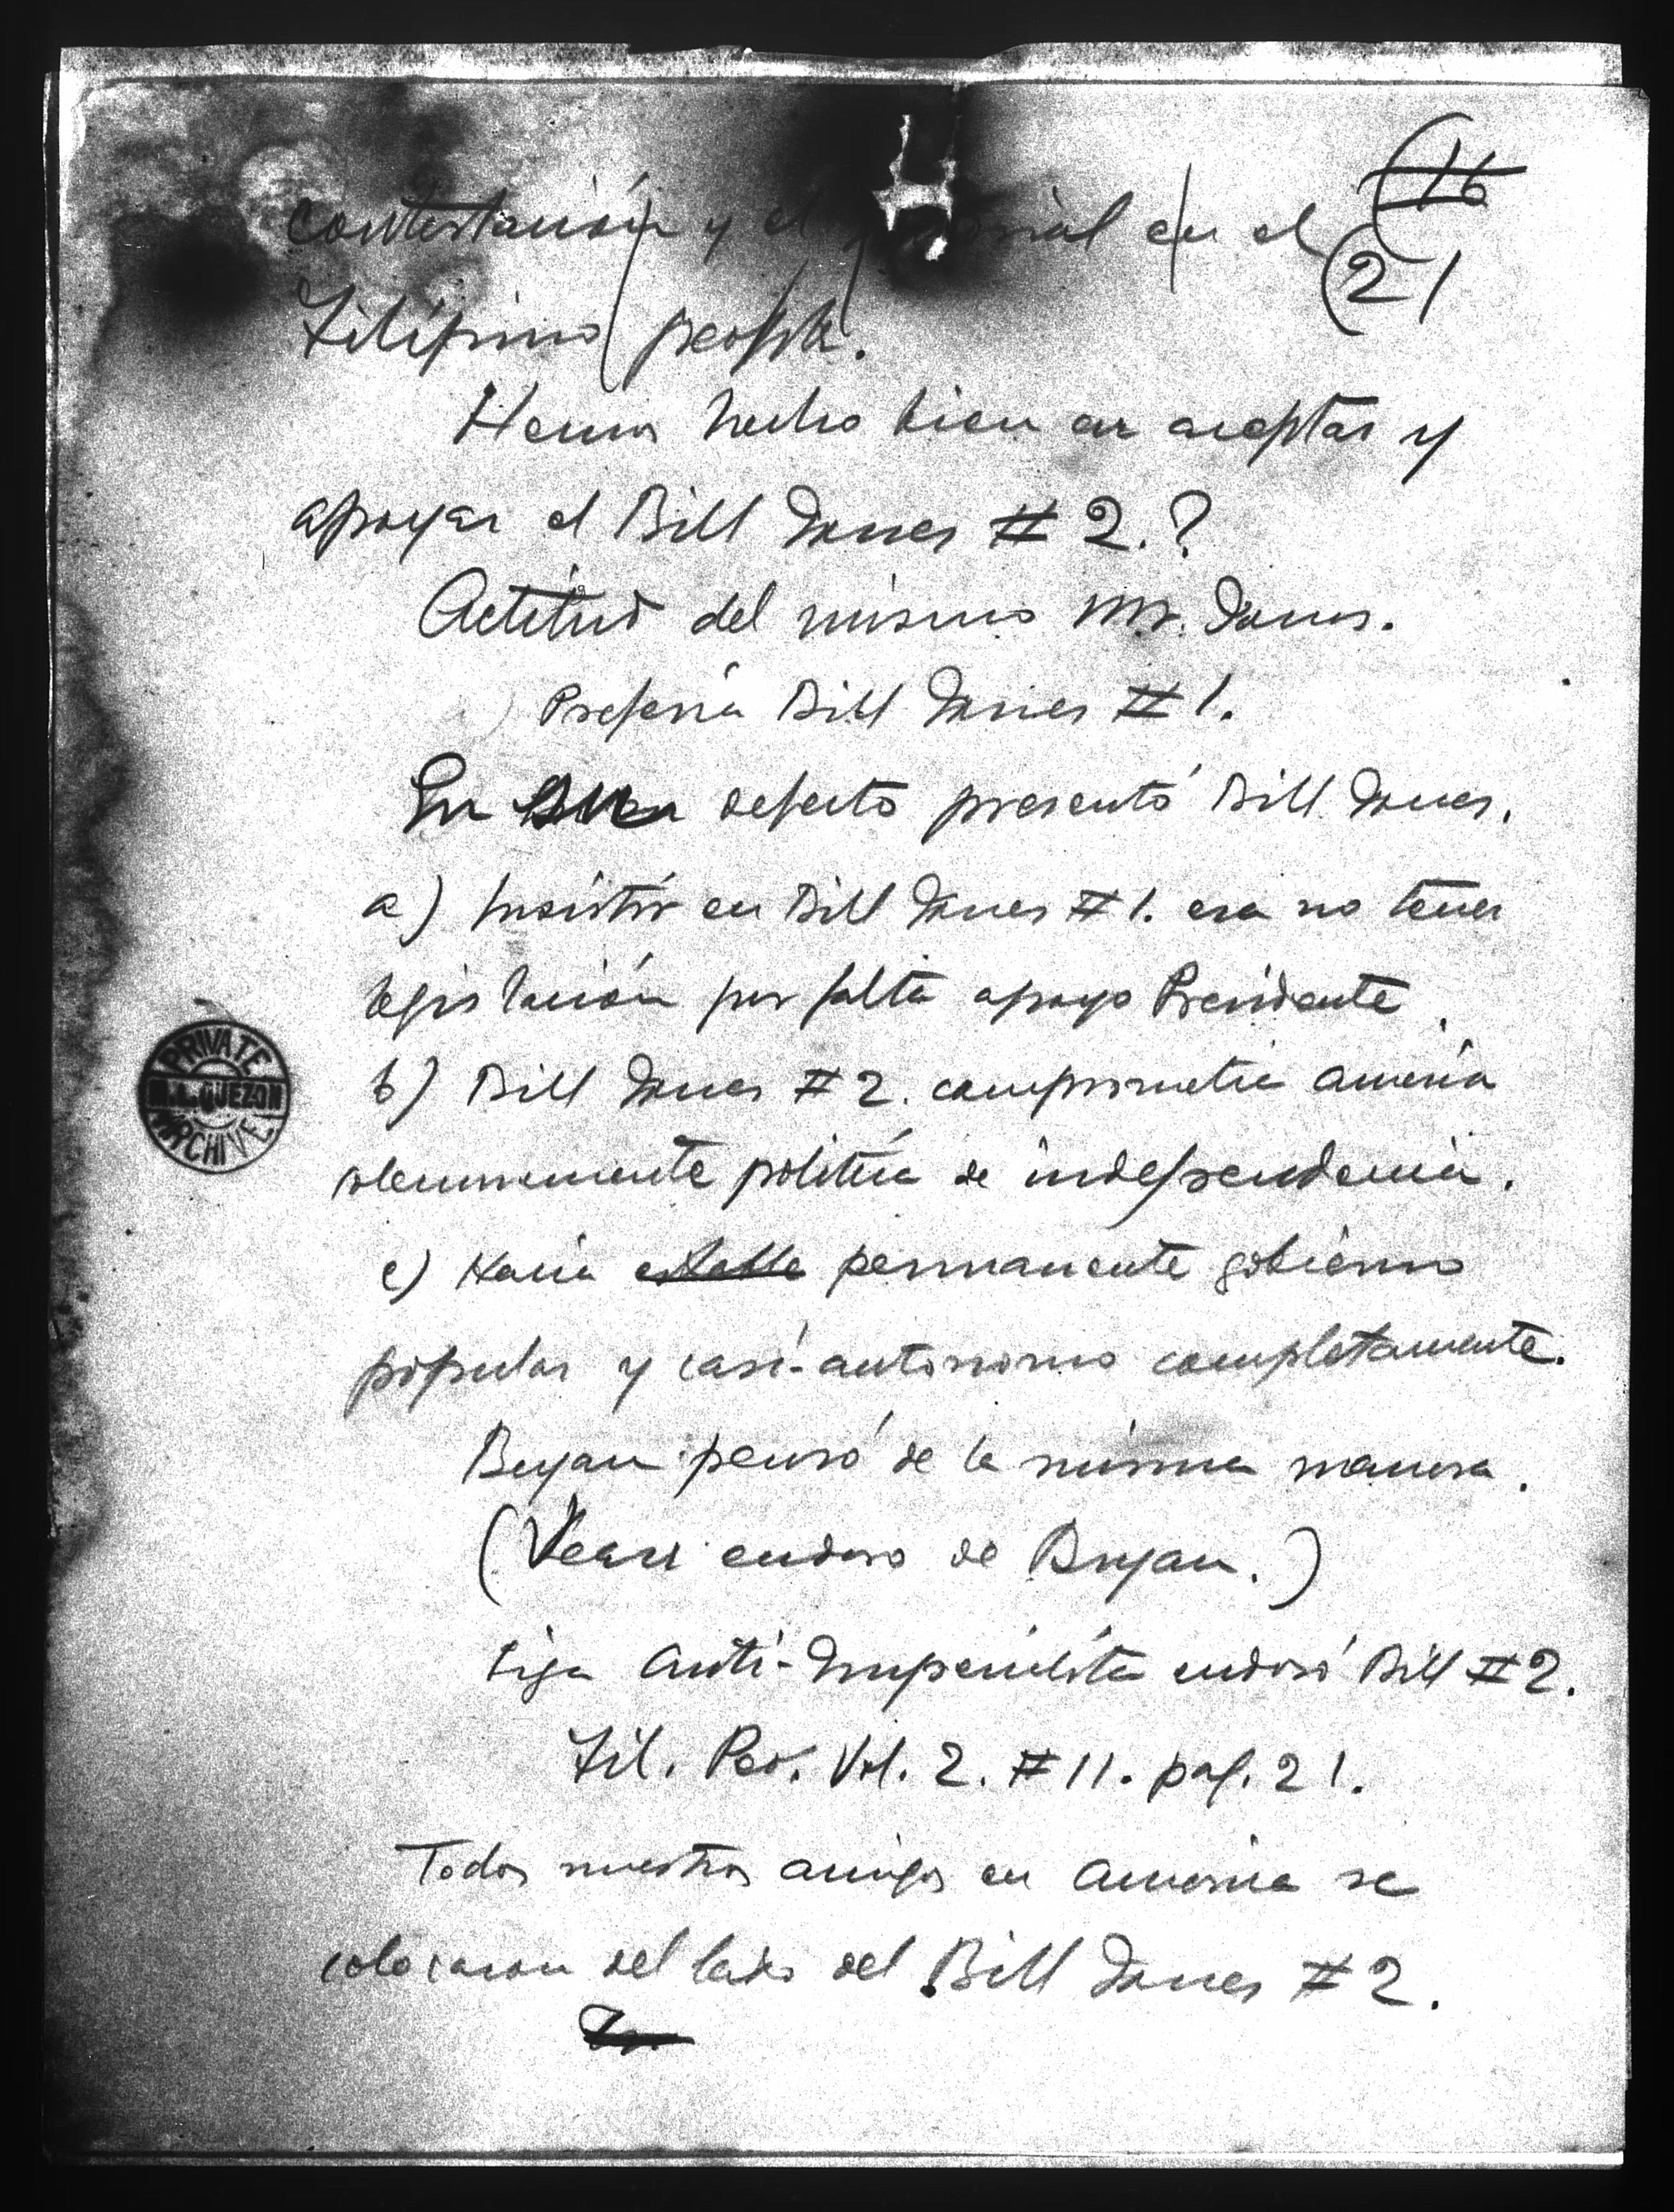 16
contestación y el en el
21
Filipino people.
Hemos hecho bien en aceptar y
apoyar el Bill Jones # 2.?
Actitud del mismo Mr. Jones.
Prefería Bill Jones # 1.
En defecto presentó Bill Jones.
a) Insistir en Bill Jones # 1. era no tener
legislación por falta apoyo Presidente.
b) Bill Jones # 2. comprometía America
solemnemente política de independencia.
c) Hacia estable permanente gobierno
popular y casi-autonomo completamente.
PRIVATE
M.L. QUEZON
ARCHIVE
Bryan pensó de la misma manera.
(Vease endoso de Bryan.)
Liga Anti-Imperialista endosó Bill # 2.
Fil. Peo. Vol. 2. # 11. pag. 21.
Todos nuestros amigos en America se
colocaron del lado del Bill Jones # 2.